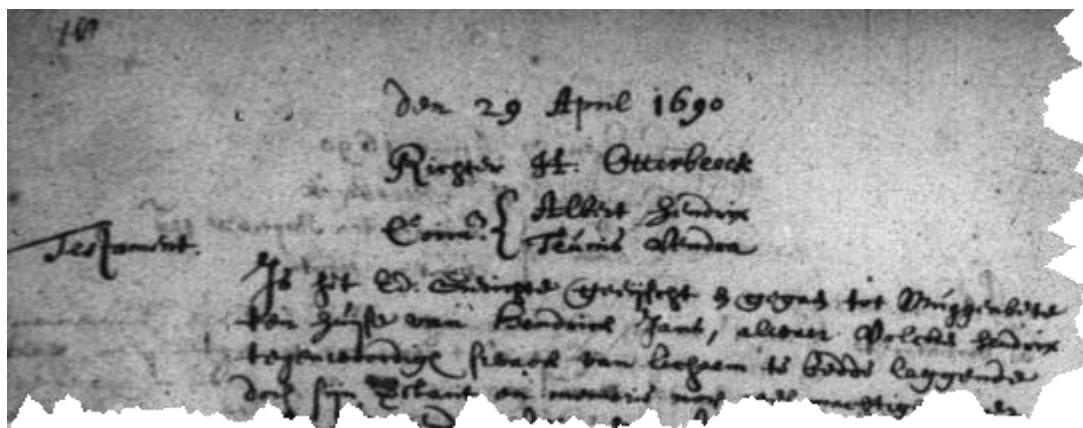 den 29 April 1690
Richter H. Otterbeeck
Corn. Albert Hendrix
Teunis
Testament.
Is het Ed. Gerichte gerijscht tot Muggenbete
ten huijse van Hendrick Jans, alwaer Volcken Hendrix
tegenwoordigh van lichaem te bedde leggende
doch sijn verstant en memorie noch wel machtig